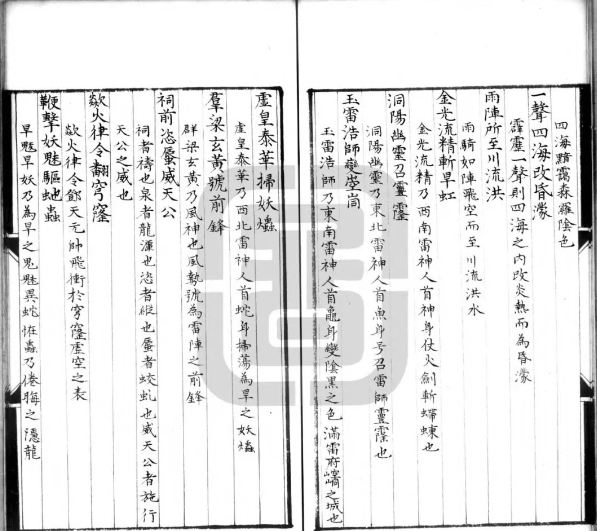 四海黯靄森羅陰色
一聲四海改昏濛
霹靂一聲則四海之內改炎熱而為昏濛
雨陣所至川流洪
雨騎如陣飛空而至川流洪水
金光流精斬旱虹
金光流精乃西南雷神人首神身仗火劍斬螮蝀也
洞陽幽靈召靈霳
洞陽幽靈乃東北雷神人首魚身号召雷師靈霳也
玉雷浩師變崆峝
玉雷浩師乃東南雷神人首龜身變陰黑之色滿雷府之城也
虛皇泰華掃妖爞
虛皇泰華乃西北雷神人首蛇身掃蕩為旱之妖爞
羣梁玄黃號前鋒
群梁玄黃乃風神也風勢號為雷陣之前鋒
祠前恣蜃威天公
祠者禱也泉者龍湫也恣者縱也蜃者蛟虬也威天公者施行
天公之威也
欻火律令翻穹窿
欻火律令鄧天元帥飛衝於穹窿虛空之表
鞭擊妖魅驅虵蟲
旱魃旱妖乃為旱之鬼魅異蛇恠蟲乃倦鞱之隱龍